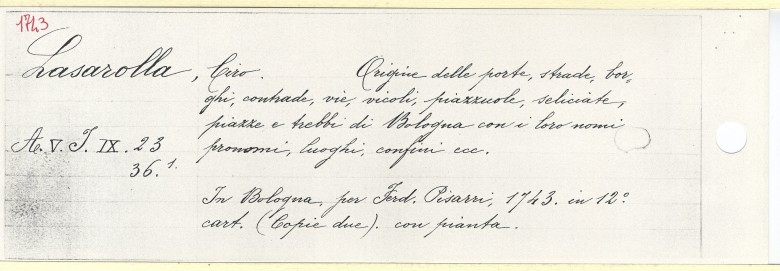 1743
Lasarolla, Ciro. Origine delle porte, strade, bor-
ghi, contrade, vie, vicoli, piazzuole, seliciate,
piazze e trebbi di Bologna con i loro nomi
A. V. T. IX. 23 pronomi, luoghi, confini ecc.
36. 1.
In Bologna, per Ferd. Pisarri, 1743. in 12°
cart. (Copie due). con pianta.